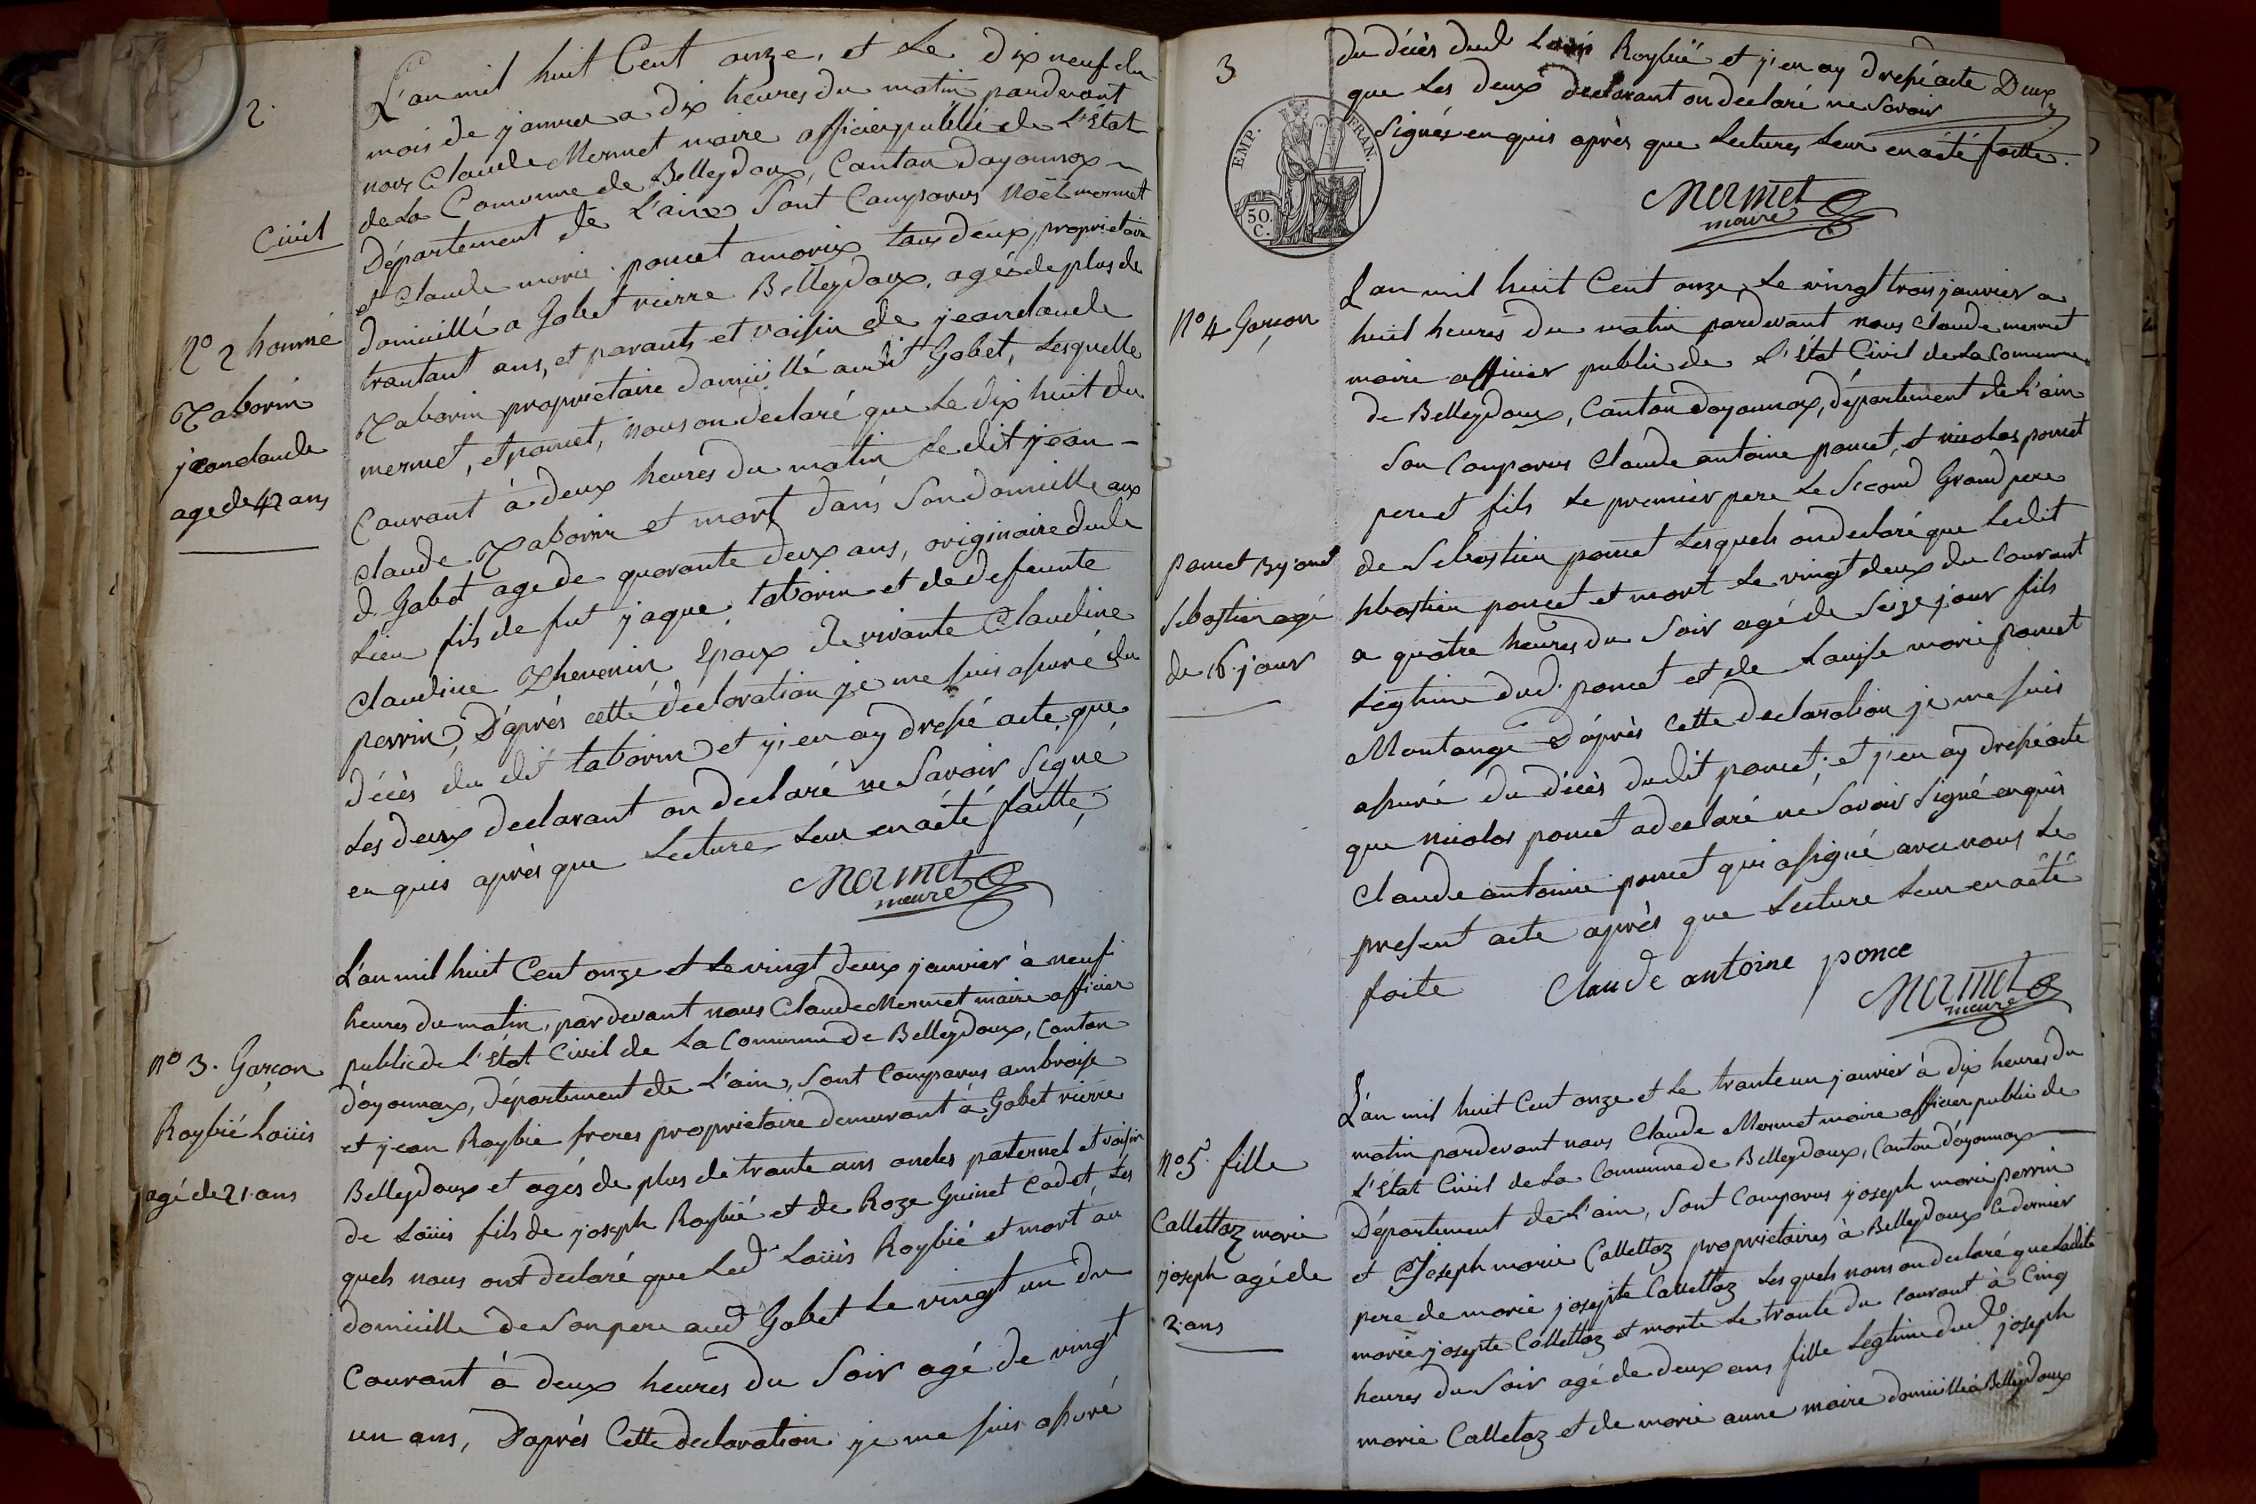 2.
civil
L'an mil huit Cent onze, et Le dix neuf du
mois de janvier a dix heures du matin pardevant
nous Claude Mermet maire officier public de L'État
de La Commune de Belleydoux, Canton doyonnax
Département de L'ain Sont Comparus Noël mermet
et Claude marie poncet amorix tous deux proprietaire
domicillé a Gobet rierre Belleydoux, agés de plus de
trantant ans, et parants et voisin de jeanclaude
Taborin proprietaire domicillé audit Gobet, Lesquelle
mermet, et poncet, nous on declaré que Le dix huit du
Courant à deux heures du matin Le dit jean-
claude Taborin et mort dans Son domicille aux
d. Gobet age de quarante deux ans, originaire dudt
Lieu fils de fut jaque taborin et de defeunte
Claudine Thevenin Epoux de vivante Claudine
perrin, D'aprés cette declaration je me suis assuré du
décès du dit taborin et j'en ay dressé acte que
Les deux declarant on declaré ne Savoir Signé
en quis après que Lecture Leur en a été faitte,
Mermet
maire
N° 2 homme
Taborin
jeanclaude
age de 42 ans
L'an mil huit Cent onze et Le vingt deux janvier à neuf
heures du matin, pardevant nous Claude Mermet maire officier
public de L'État Civil de La Commune de Belleydoux, Canton
d'oyonnax, département de L'ain, Sont Comparus ambroise
et jean Raybié freres proprietaire demeurant à Gobet rierre
Belleydoux et agés de plus de trante ans oncles paternel et voisin
de Loüis fils de joseph Raybié et de Roze Guinet Cadet Les
quels nous ont declaré que Led. Loüis Raybié et mort au
domicille de Son pere aud. Gobet Le vingt un du
Courant à deux heures du Soir agé de vingt
un ans, D'aprés Cette declaration je me suis assuré
N° 3. Garçon
Raybié Loüis
agé de 21. ans
3
du décès dud. Loüis Raybié et j'en ay dressé acte Deux
que Les deux declarant on declaré ne Savoir
Signés en quis aprés que Lectures Leur en a été faitte.
EMP. FRAN.
50.
C.
Mermet
maire
L'an mil huit Cent onze Le vingt trois janvier a
huit heures du matin pardevant nous Claude mermet
maire officier public de L'État Civil de La Commune
de Belleydoux, Canton doyonnax, département de L'ain
Son Comparus Claude antoine poncet, et nicolas poncet
pere et fils Le premier pere Le Second Grand pere
de Sebastien poncet Lesquels on declaré que Ledit
sbastien poncet et mort Le vingt deux du Courant
a quatre heures du Soir agé de Seize jour fils
Legtime dud. poncet et de Louise marie poncet
Montange D'après Cette declaration je me suis
assuré du décès dudit poncet; et j'en ay dressé acte
que nicolas poncet a declaré ne Savoir Signé enquis
Claude antoine poncet qui a signé avec nous Le
present acte après que Lecture Leur en a été
faite
Claude antoine ponce
Mermet
maire
N° 4 Garçon
Sebastien agé
de 16. jour
L'an mil huit Cent onze et Le trante un janvier à dix heures du
matin pardevant nous Claude Mermet maire officier public de
L'État Civil de La Commune de Belleydoux, Canton d'oyonnax
Département de L'ain, Sont Comparus joseph marie perrin
et Joseph marie Callettaz proprietaires à Belleydoux Ledernier
pere de marie josepte Callettaz Lesquels nous on declaré que Ladite
marie josepte Callettaz et morte Le trante du Courant à Cinq
heures du Soir agé de deux ans fille Legtime dud. joseph
marie Calletaz et de marie anne maire domicillé à Belleydoux
N° 5. fille
Callettaz marie
joseph agé de
2. ans